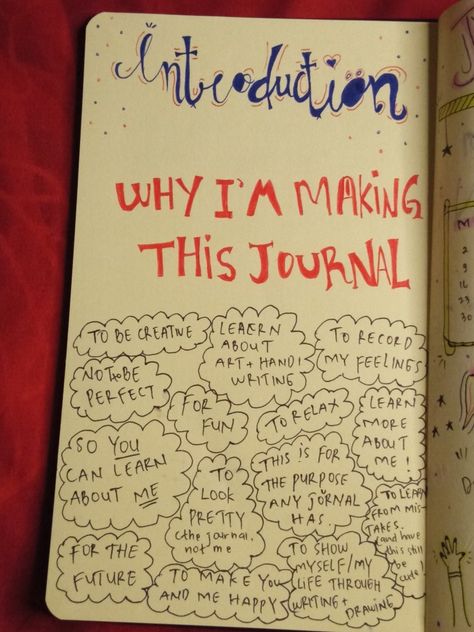 Introduction
WHY I'M MAKING
THIS JOURNAL
TO BE CREATIVE
LEARN
ABOUT
ART + HAND!
WRITING
TO RECORD
MY FEELINGS
NOT TO BE
PERFECT
FOR
FUN
TO RELAX
LEARN
MORE
ABOUT
ME!
SO YOU
CAN LEARN
ABOUT ME
TO
LOOK
PRETTY
(the journal,
not me
THIS IS FOR
THE PURPOSE
ANY JORNAL
HAS.
TO LEARN
FROM MIS-
TAKES.
(and have
this still
be
cute!)
FOR THE
FUTURE
TO MAKE YOU
AND ME HAPPY
TO SHOW
MYSELF/MY
LIFE THROUGH
WRITING +
DRAWING
J
M
2
9
16
23
30